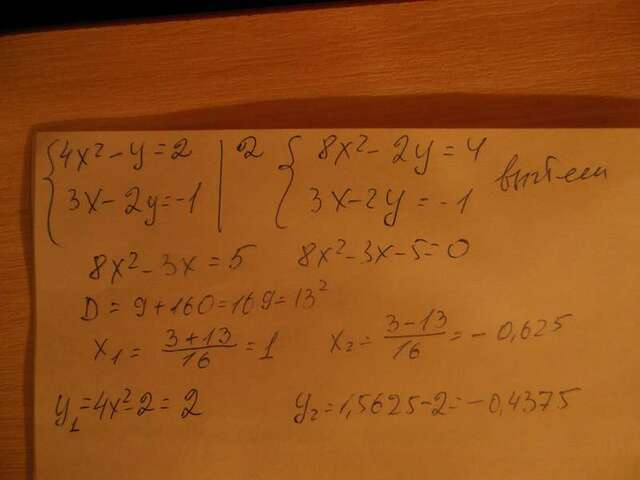 {4x²-y=2 | 2 {8x²-2y=4 вычтем
{3x-2y=-1 | {3x-2y=-1
8x²-3x=5 8x²-3x-5=0
D=9+160=169=13²
x₁=(3+13)/16=1 x₂=(3-13)/16=-0,625
y₁=4x²-2=2 y₂=1,5625-2=-0,4375